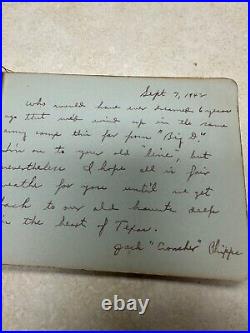 Sept 7, 1942
Who would have ever dreamed 6 years
ago that we'd wind up in the same
army camp this far from "Big D."
on to your old "line", but
nevertheless I hope all is fair
weather for you until we get
back to our old haunts deep
in the heart of Texas.
Jack " " Phipps